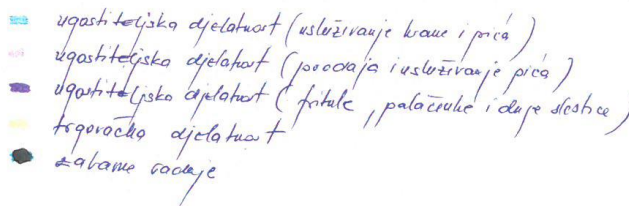 ugostiteljska djelatnost (usluživanje hrane i pića)
ugostiteljska djelatnost (prodaja i usluživanje pića)
ugostiteljska djelatnost (fritule, palačinke i druge slastice)
trgovačka djelatnost
zabavne radnje